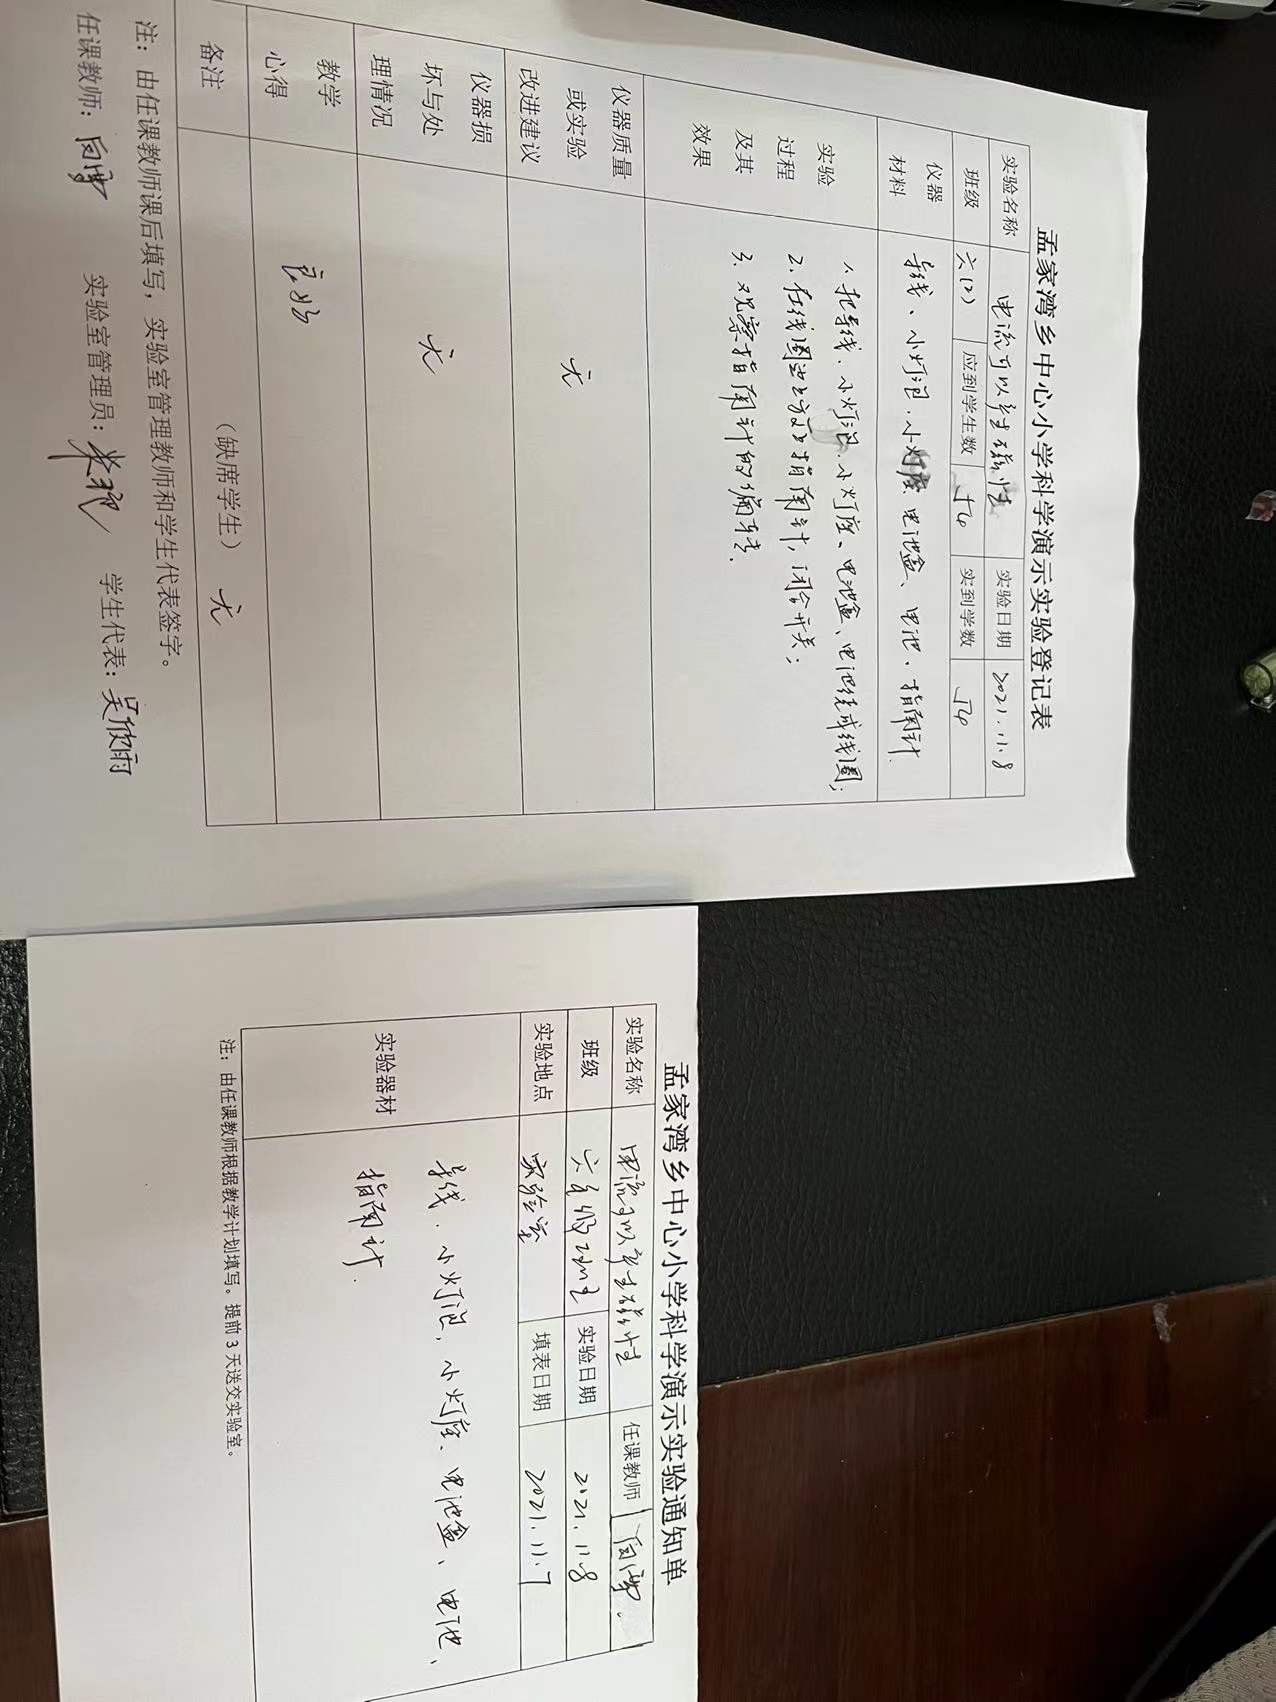 孟家湾乡中心小学科学演示实验登记表
实验名称 电流可以产生磁性 实验日期 2021.11.8
班级 六(2) 应到学生数 54 实到学数 54
仪器
材料
导线、小灯泡、小灯座、电池盒、电池、指南针
实验
过程
及其
效果
1、把导线、小灯泡、小灯座、电池盒、电池绕成线圈;
2、在线圈 上方 指南针,闭合开关;
3、观察指南针的偏转.
仪器质量
或实验
改进建议
无
仪器损
坏与处
理情况
无
教学
心得
良好
备注
(缺席学生) 无
注:由任课教师课后填写,实验室管理教师和学生代表签字。
任课教师:白雪 实验室管理员: 学生代表:吴欣雨
孟家湾乡中心小学科学演示实验通知单
实验名称 电流可以产生磁性 任课教师 白雪
班级 六年级2班 实验日期 2021.11.8
实验地点 实验室 填表日期 2021.11.7
实验器材
导线、小灯泡、小灯座、电池盒、电池、
指南针.
注:由任课教师根据教学计划填写。提前 3 天送交实验室。